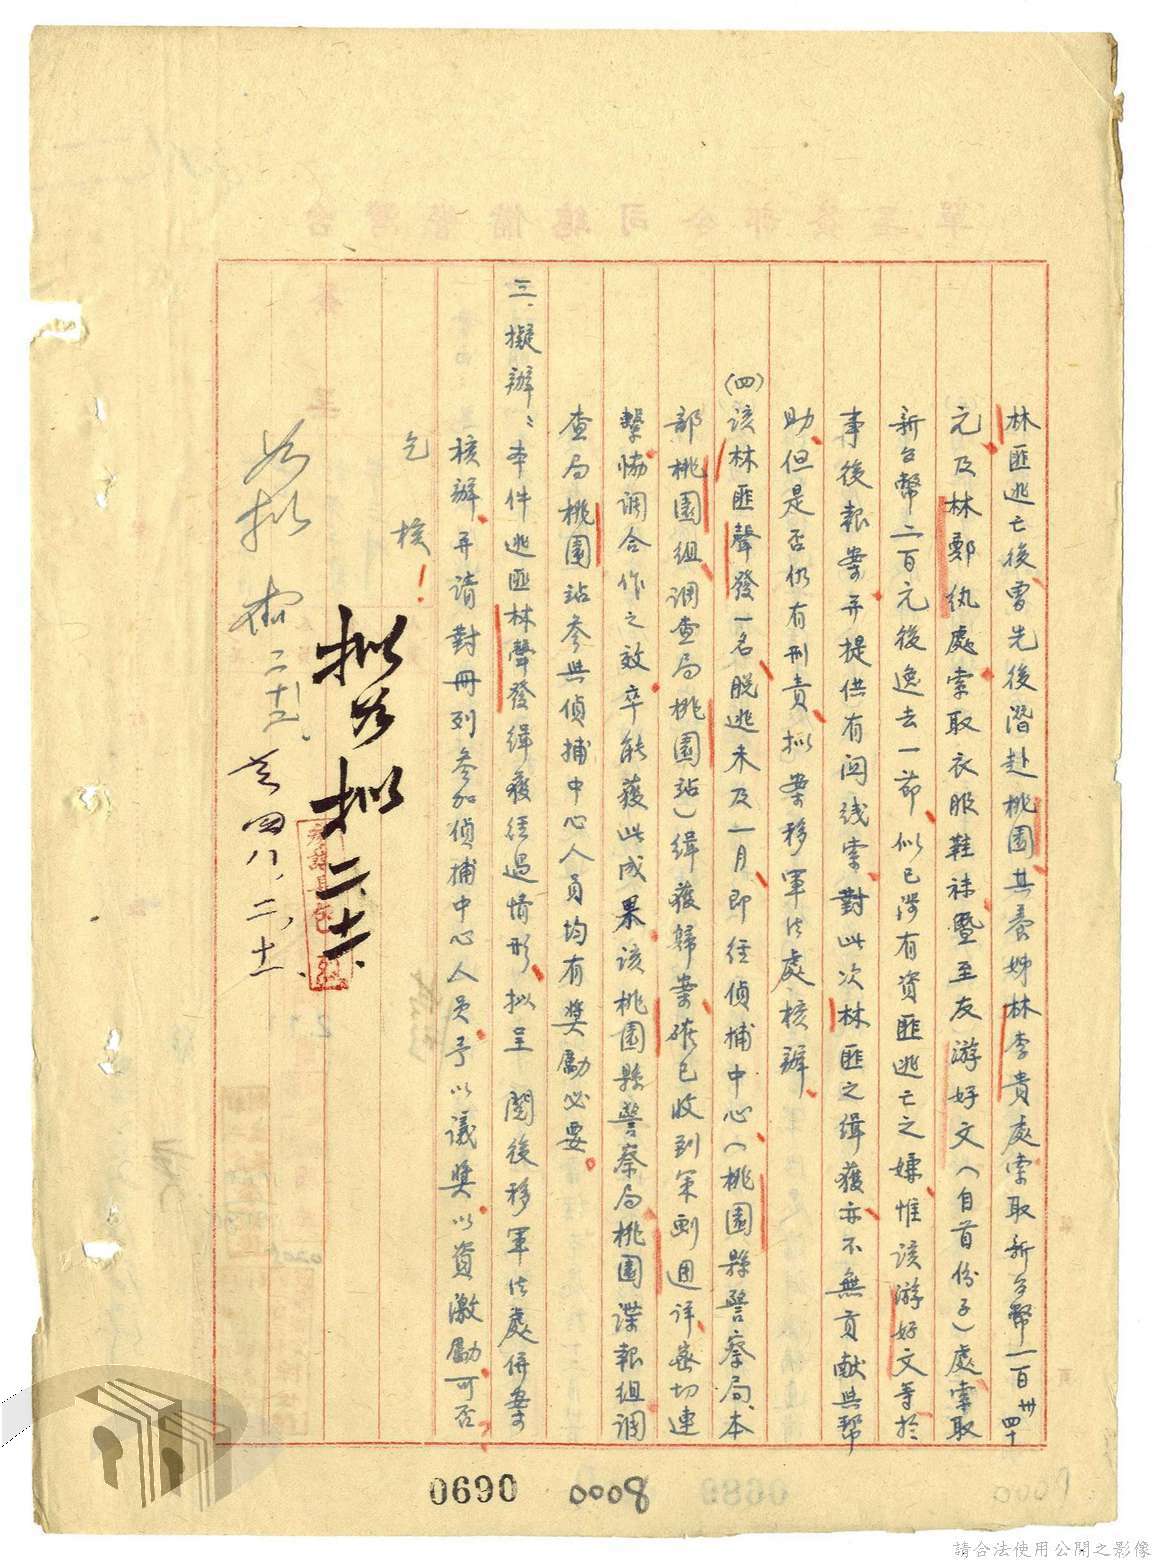 林匪逃亡後、曾先後潛赴桃園其養姊林李貴處索取新台幣一百卅四十
元及林鄭紈處索取衣服鞋袜暨至友游好文(自首份子)處索取
新台幣二百元後逸去一節、似已涉有資匪逃亡之嫌惟該游好文等於
事後報案并提供有関线索、對此次林匪之缉獲亦不無貢献與幫
助、但是否仍有刑責、拟案移軍法處核辦、
(四)該林匪聲發一名脱逃未及一月、即経偵捕中心(桃園縣警察局、本
部桃園組、調查局桃園站)缉獲歸案、確已收到策劃週详、密切連
繫、協調合作之效、卒能獲此成果、該桃園縣警察局、桃園諜報組、調
查局桃園站參與偵捕中心人員均有奬勵必要。
三、擬辦：本件逃匪林聲發缉獲経過情形、拟呈 閲後移軍法處併案
核辦、并請對冊列參加偵捕中心人員予以議奬、以資激勵、可否
乞 核！
拟如拟 二、十六、
如拟
二、十二、
四八、二、十二、
0690
0008
請合法使用公開之影像